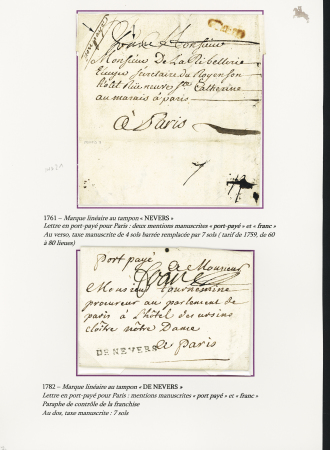 port payé
franc
A Monsieur
Monsieur De La Ribellerie
Ecuyer secretaire du Roy en son
hotel Rüe neuve Ste Catherine
au marais à paris
à Paris
7
1761 – Marque linéaire au tampon « NEVERS »
Lettre en port-payé pour Paris : deux mentions manuscrites « port-payé » et « franc »
Au verso, taxe manuscrite de 4 sols barrée remplacée par 7 sols ( tarif de 1759, de 60
à 80 lieues)
Port payé
A Monsieur
franc
Monsieur
procureur au parlement de
paris à L'hôtel des ursins
cloître nôtre Dame
DE NEVERS
A Paris
1782 – Marque linéaire au tampon « DE NEVERS »
Lettre en port-payé pour Paris : mentions manuscrites « port payé » et « franc »
Paraphe de contrôle de la franchise
Au dos, taxe manuscrite : 7 sols